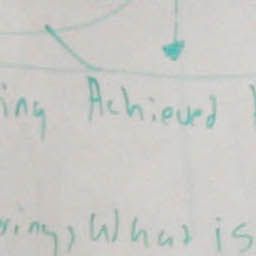 ing Achieved
ring, What is